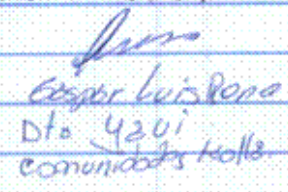 Gaspar Luis Rona
Dto Yavi
Comunidades Kolla.